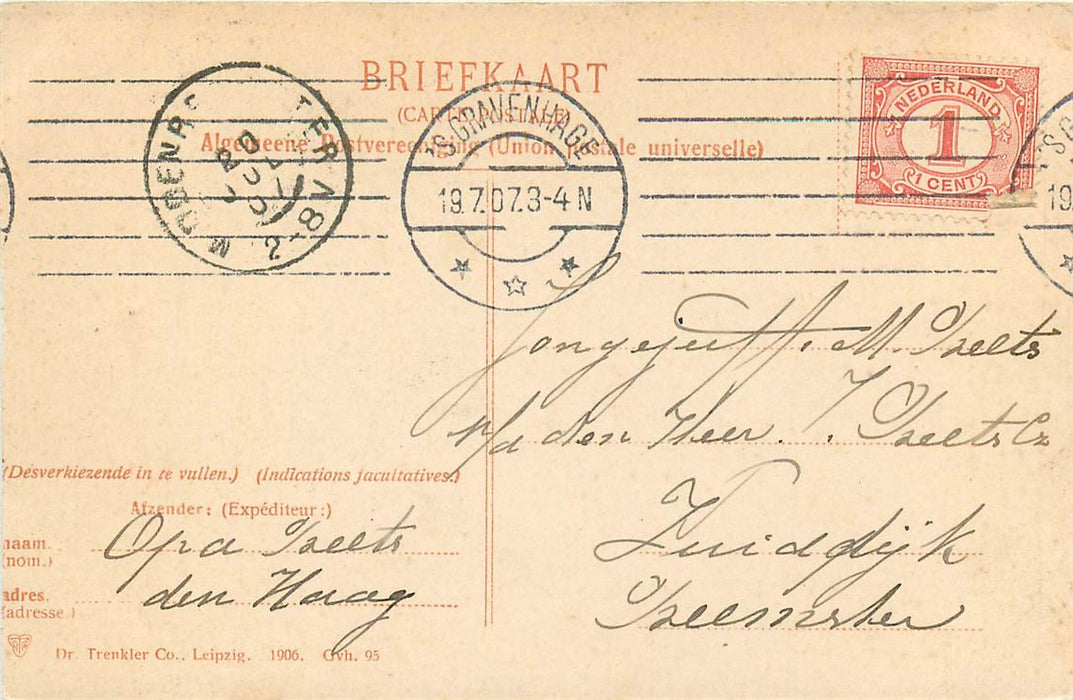 BRIEFKAART
(CARTE POSTALE)
Algemeene Postvereeniging (Union postale universelle)
'S GRAVENHAGE
19.7.07.3-4 N
2-8V
NEDERLAND
1
1 CENT
'S G
19
Jongejuff. M. Beets
p/a den Heer. J. Beets Cz
Zuiddijk
Beemster
(Desverkiezende in te vullen.) (Indications facultatives.)
Afzender: (Expéditeur:)
naam.
(nom.)
Opa Beets
adres.
(adresse.)
den Haag
Dr. Trenkler Co., Leipzig. 1906. Gvh. 95